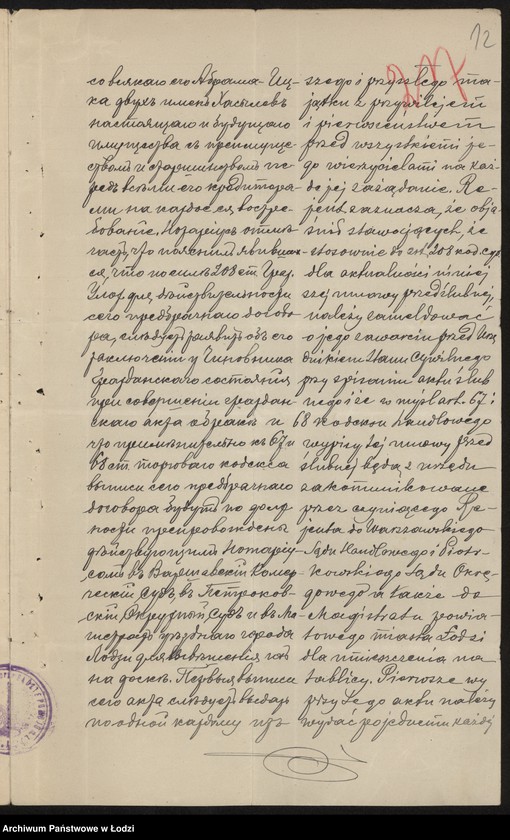 12
277
со всякаго его Абрама-Иц-
ка двухъ именъ Хасклевъ
настоящаго и будущаго
имущества съ преимуще-
ствомъ и старшинствомъ пе-
редъ всѣми его кредитора-
ми на каждое ея востре-
бованіе. Нотаріусъ отмѣ-
чаетъ, что пояснилъ явившим-
ся, что по силѣ 208 ст. Граж.
Улож. для дѣйствительности
сего предбрачнаго догово-
ра, слѣдуетъ заявить объ его
заключеніи у Чиновника
Гражданскаго состоянія
при совершеніи граждан-
скаго акта о бракѣ и
что примѣнительно къ 67 и
68 ст. торговаго кодекса
выписи сего предбрачнаго
договора будутъ по долж-
ности препровождены
дѣйствующимъ Нотаріу-
сомъ въ Варшавскій Коммер-
ческій Судъ, въ Петроков-
скій Окружный Судъ и въ Ма-
гистратъ уѣзднаго города
Лодзи для вывѣшенія ихъ
на доскѣ. Первыя выписи
сего акта слѣдуетъ выдать
по одной каждому изъ
szego i przyszłego ma-
jątku z przywilejem
i pierwszeństwem
przed wszystkiemi je-
go wierzycielami na każ-
de jej zażądanie. Re-
jent zaznacza, że obja-
śnił stawających, że
stosownie do art. 208 kod. cyw.
dla aktualności niniej
szej umowy przedślubnej,
należy zameldować
o jego zawarciu przed Urzę
dnikiem Stanu Cywilnego
przy spisaniu aktu ślub
nego i że w myśl art. 67 i
68 Kodeksu handlowego
wypisy tej umowy przed
ślubnej będą z urzędu
zakomunikowane
przez czyniącego Re-
jenta do Warszawskiego
Sądu Handlowego i Piotr-
kowskiego Sądu Okrę-
gowego a także do
Magistratu powia-
towego miasta Łodzi
dla umieszczenia na
tablicy. Pierwsze wy
pisy tego aktu należy
wydać po jednemu każdej
Archiwum Państwowe w Łodzi